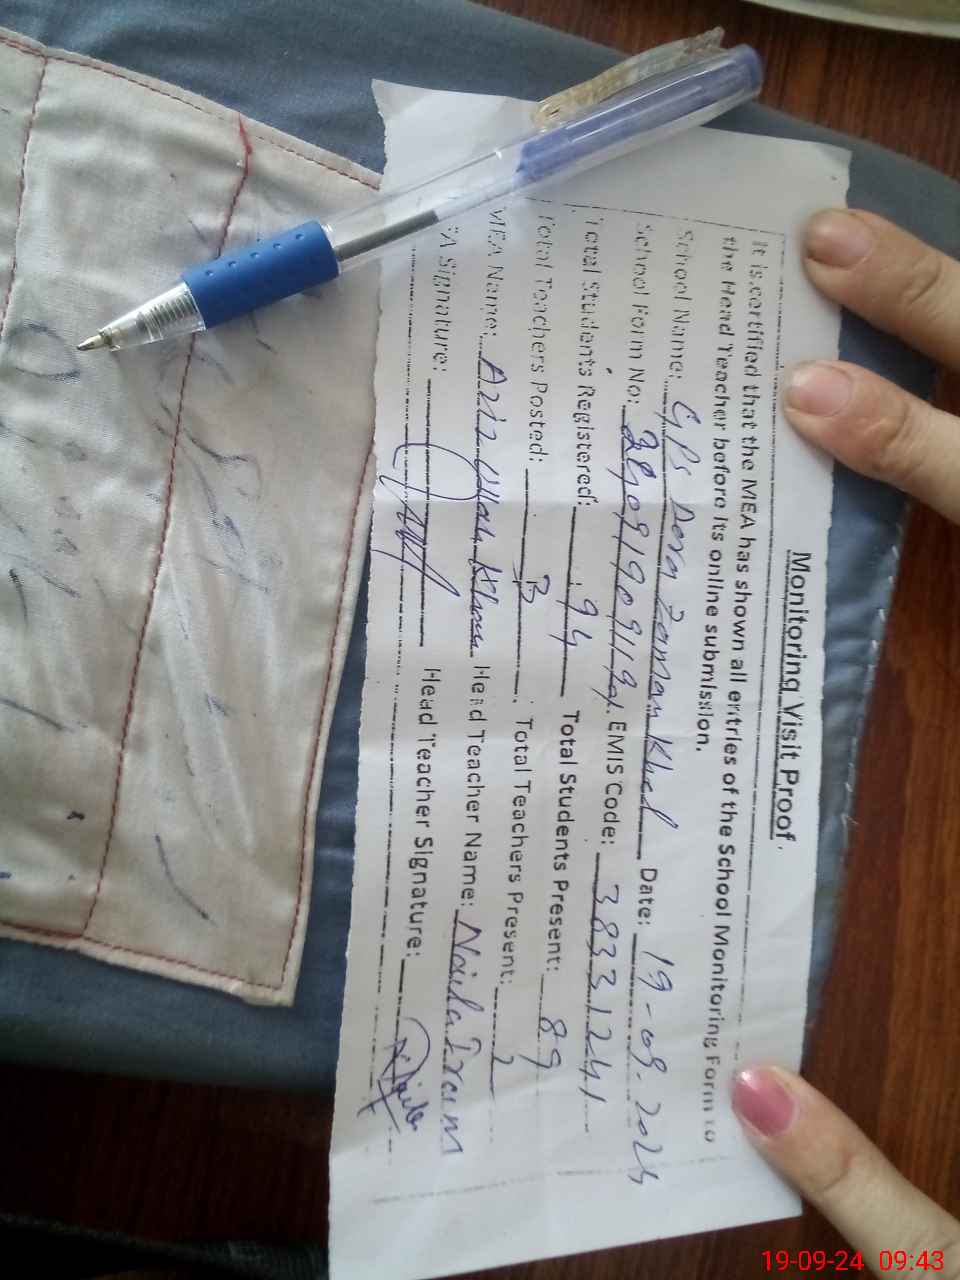 Monitoring Visit Proof.
It is certified that the MEA has shown all entries of the School Monitoring Form to
the Head Teacher before its online submission.
School Name: GPS Dera Zaman Khel Date: 19-09-2024
School Form No: EMIS Code: 38331241
Total Students Registered: 94 Total Students Present: 89
Total Teachers Posted: 3 Total Teachers Present: 2
MEA Name: Aziz Ullah Khan Head Teacher Name: Naila Irum
EA Signature: Head Teacher Signature: Naila
19-09-24 09:43